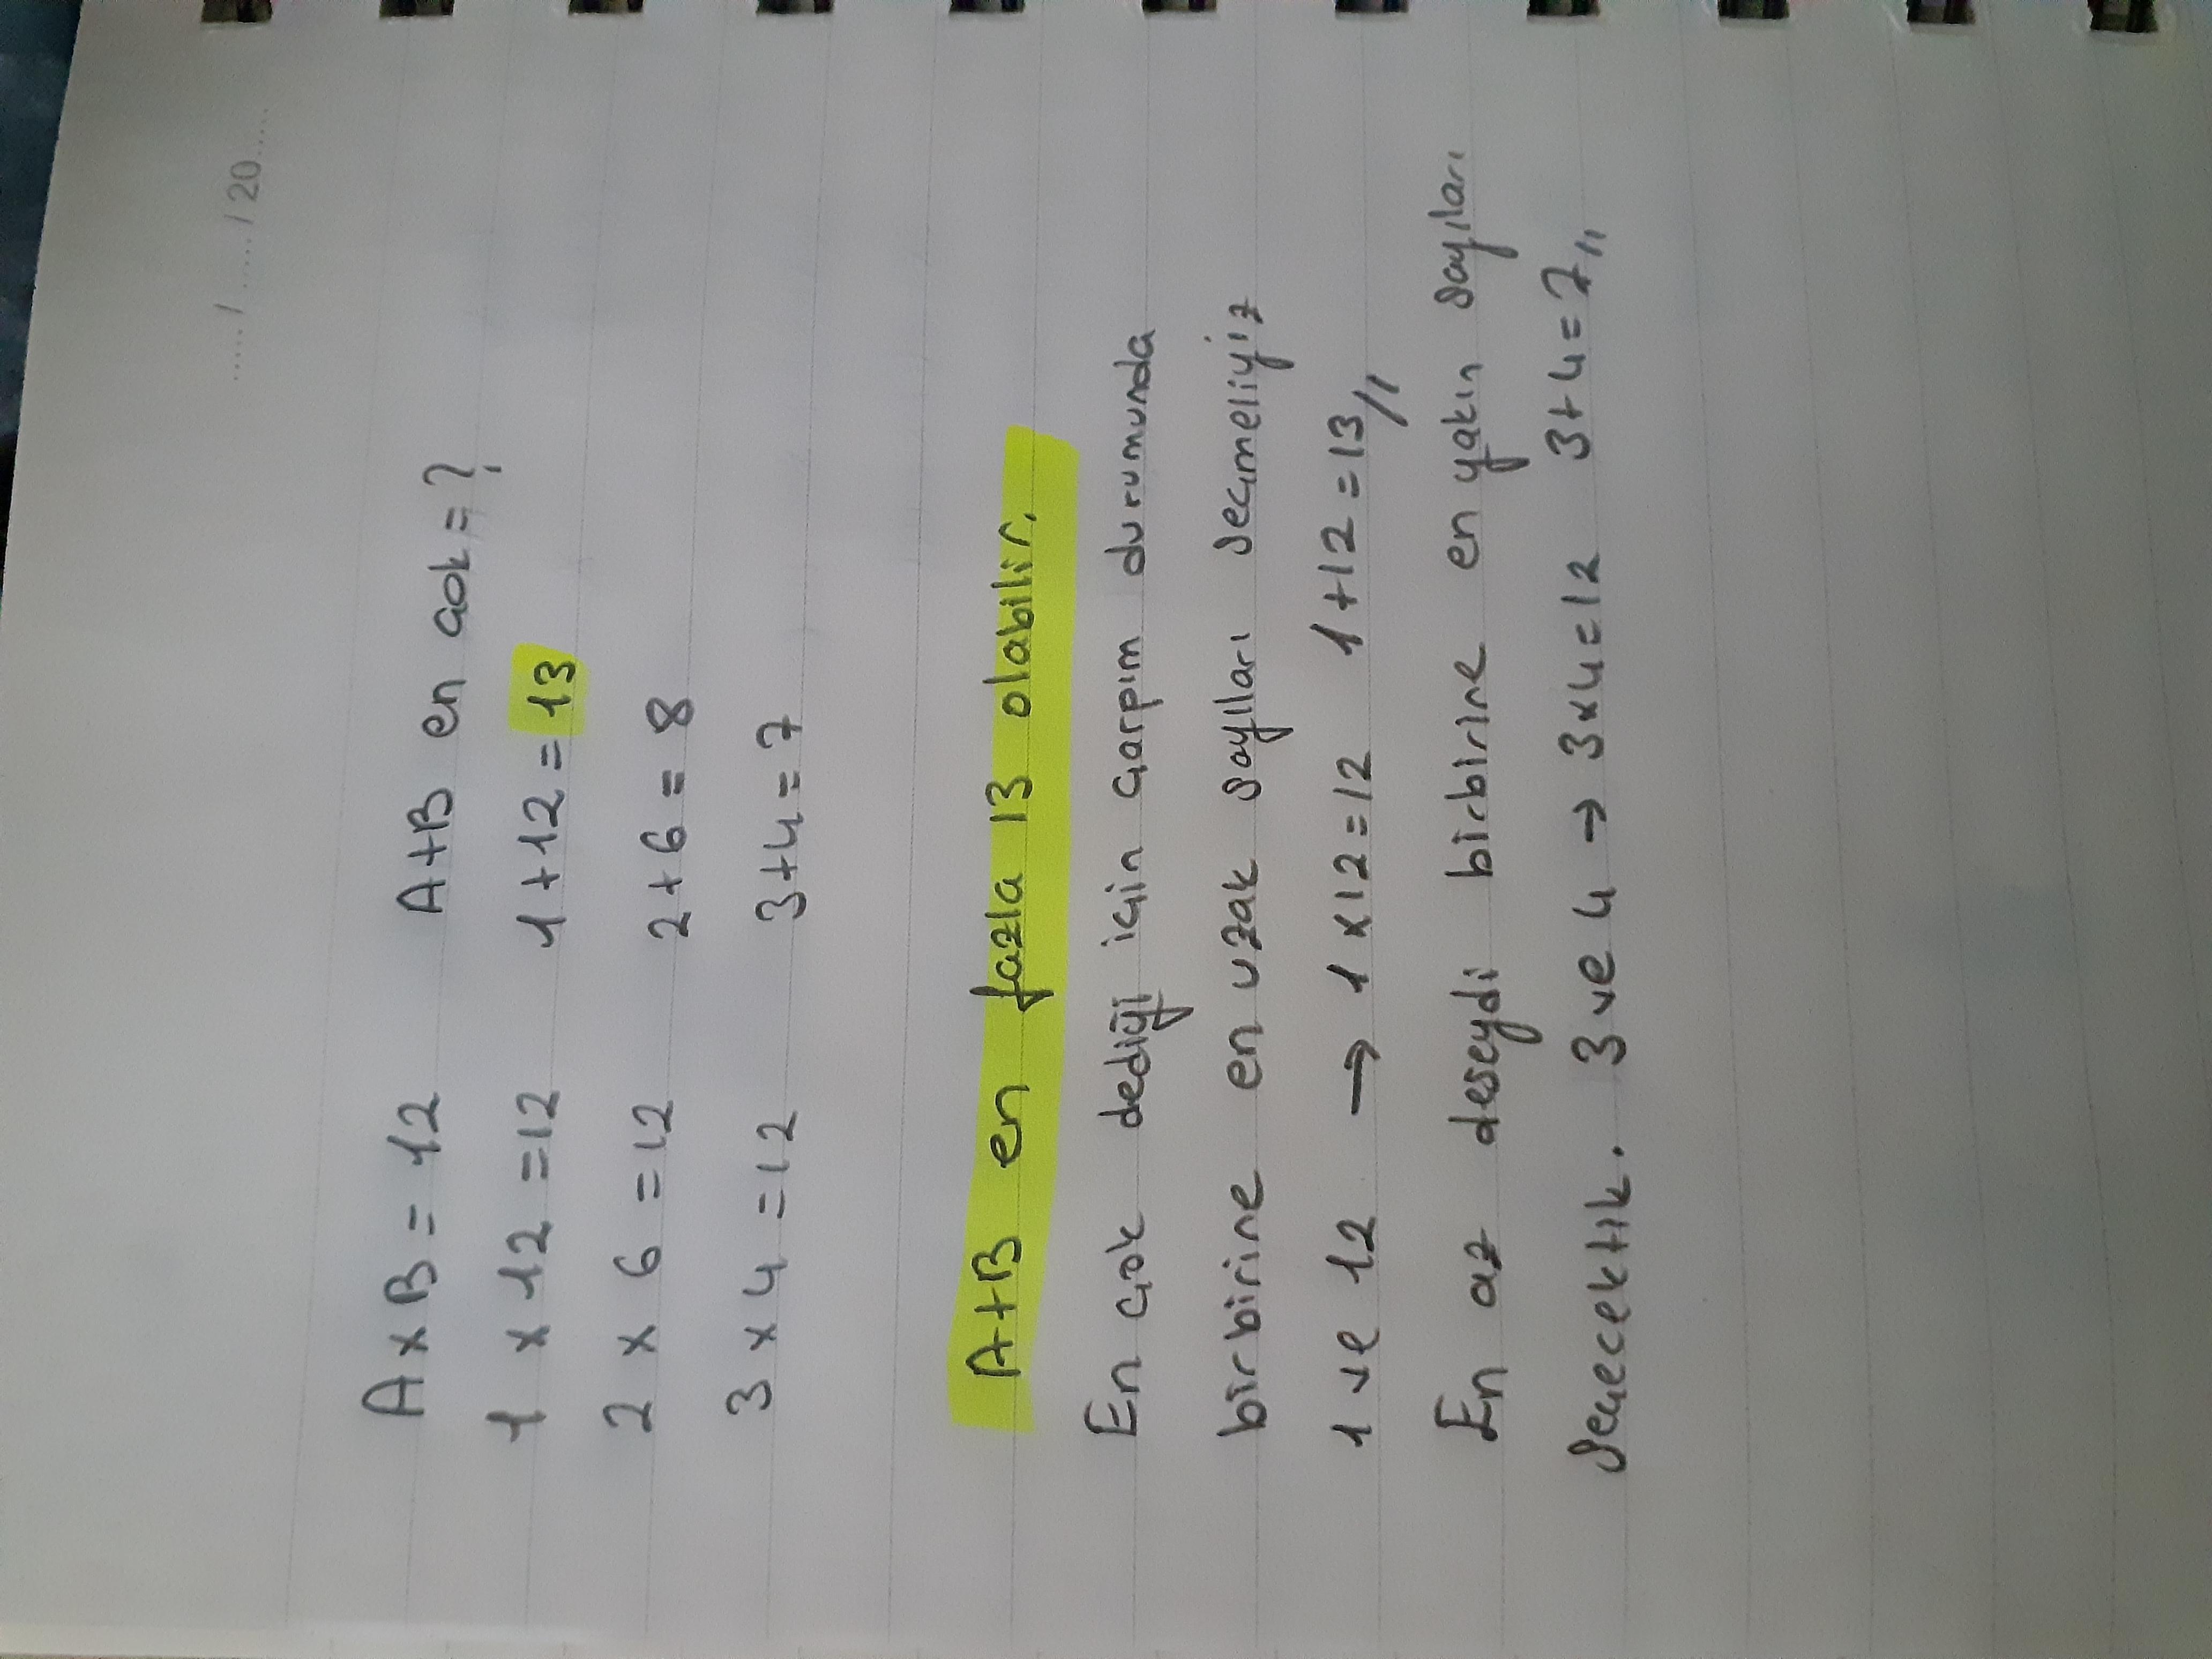 ...... / ...... / 20......
A x B = 12 A+B en çok = ?
1 x 12 = 12 1+12 = 13
2 x 6 = 12 2+6 = 8
3 x 4 = 12 3+4 = 7
A+B en fazla 13 olabilir.
En çok dediği için çarpım durumunda
birbirine en uzak sayıları seçmeliyiz
1 ve 12 → 1 x 12 = 12 1+12 = 13//
En az deseydi birbirine en yakın sayıları
seçecektik. 3 ve 4 → 3x4=12 3+4=7//